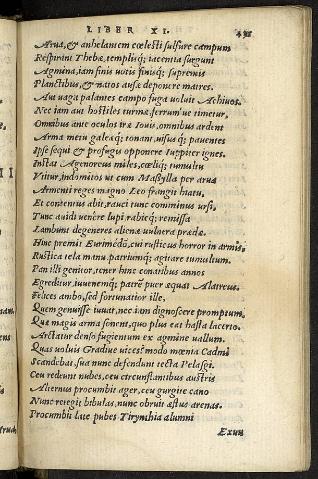 LIBER XI. 491
Arua, & anhelantem cœlesti sulfure campum
Respirant Thebæ, templisq; iacentia surgunt
Agmina, iam finis uotis finisq; supremis
Planctibus, & natos ausæ deponere matres.
Aut uaga palantes campo fuga uoluit Achiuos.
Nec iam aut hostiles turmæ, ferrum ue timetur,
Omnibus ante oculos iræ Iouis, omnibus ardent
Arma metu galeæq; tonant, uisusq; pauentes
Ipse sequi & profugis opponere Iuppiter ignes.
Instat Agenoreus miles, cœliq; tumultu
Vtitur, indomitos ut cum Massylla per arua
Armenti reges magno Leo fregit hiatu,
Et contentus abit, rauci tunc comminus ursi,
Tunc auidi uenêre lupi, rabieq; remissa
Lambunt degeneres alienæ uulnera prædæ.
Hinc premit Eurimedō, cui rusticus horror in armis,
Rustica tela manu, patriumq; agitare tumultum.
Pan illi genitor, tener hinc conatibus annos
Egreditur, iuuenemq; patrē puer æquat Alatreus.
Felices ambo, sed fortunatior ille,
Quem genuisse iuuat, nec iam dignoscere promptum,
Quæ magis arma sonent, quo plus eat hasta lacerto.
Arctatur denso fugientum ex agmine uallum.
Quas uoluis Gradiue uices? modo mœnia Cadmi
Scandebat, sua nunc defendunt tecta Pelasgi.
Ceu redeunt nubes, ceu circunstantibus austris
Alternus procumbit ager, ceu gurgite cano
Nunc retegit bibulas, nunc obruit æstus arenas.
Procumbit late pubes Tirynthia alumni
Exuu